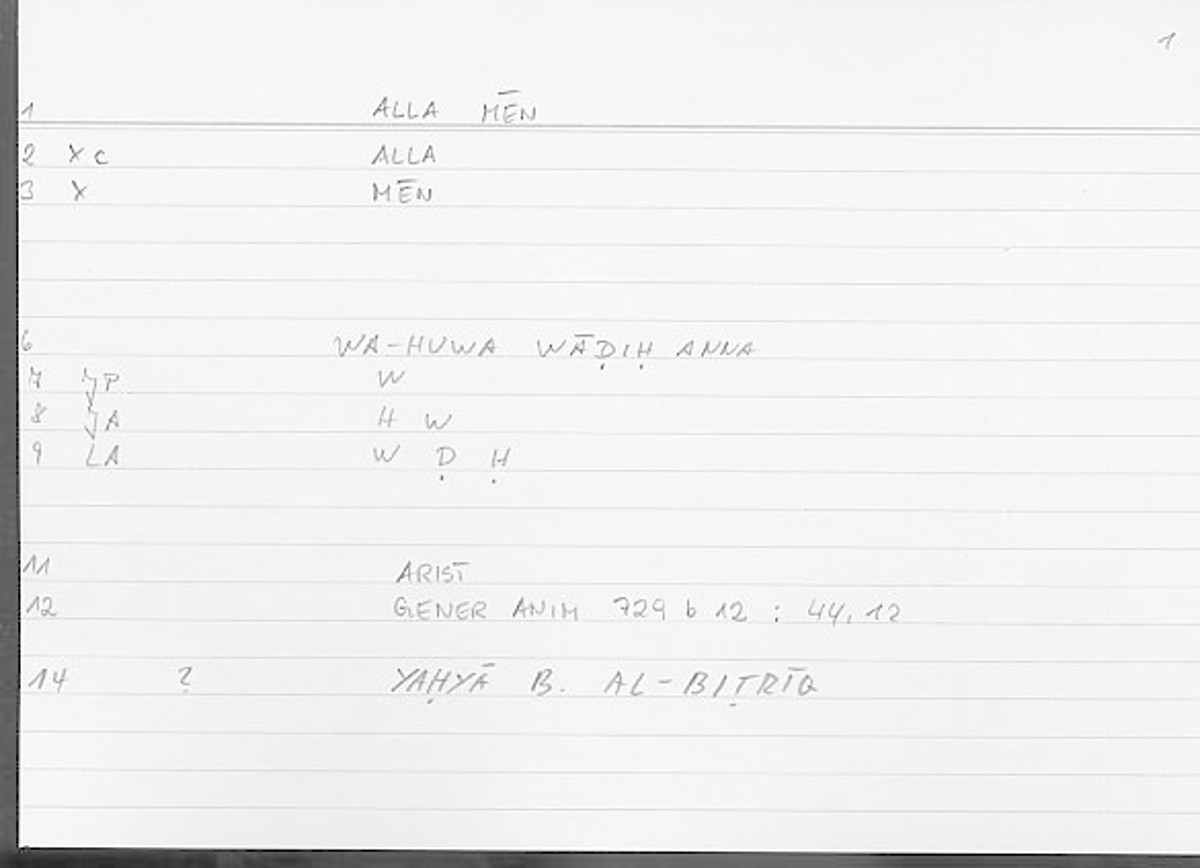 1
1 ALLA MĒN
2 X C ALLA
3 X MĒN
6 WA-HUWA WĀḌIḤ ANNA
7 P W
8 A H W
9 LA W Ḍ Ḥ
11 ARIST
12 GENER ANIM 729 b 12 : 44,12
14 ? YAḤYĀ B. AL-BIṬRĪQ